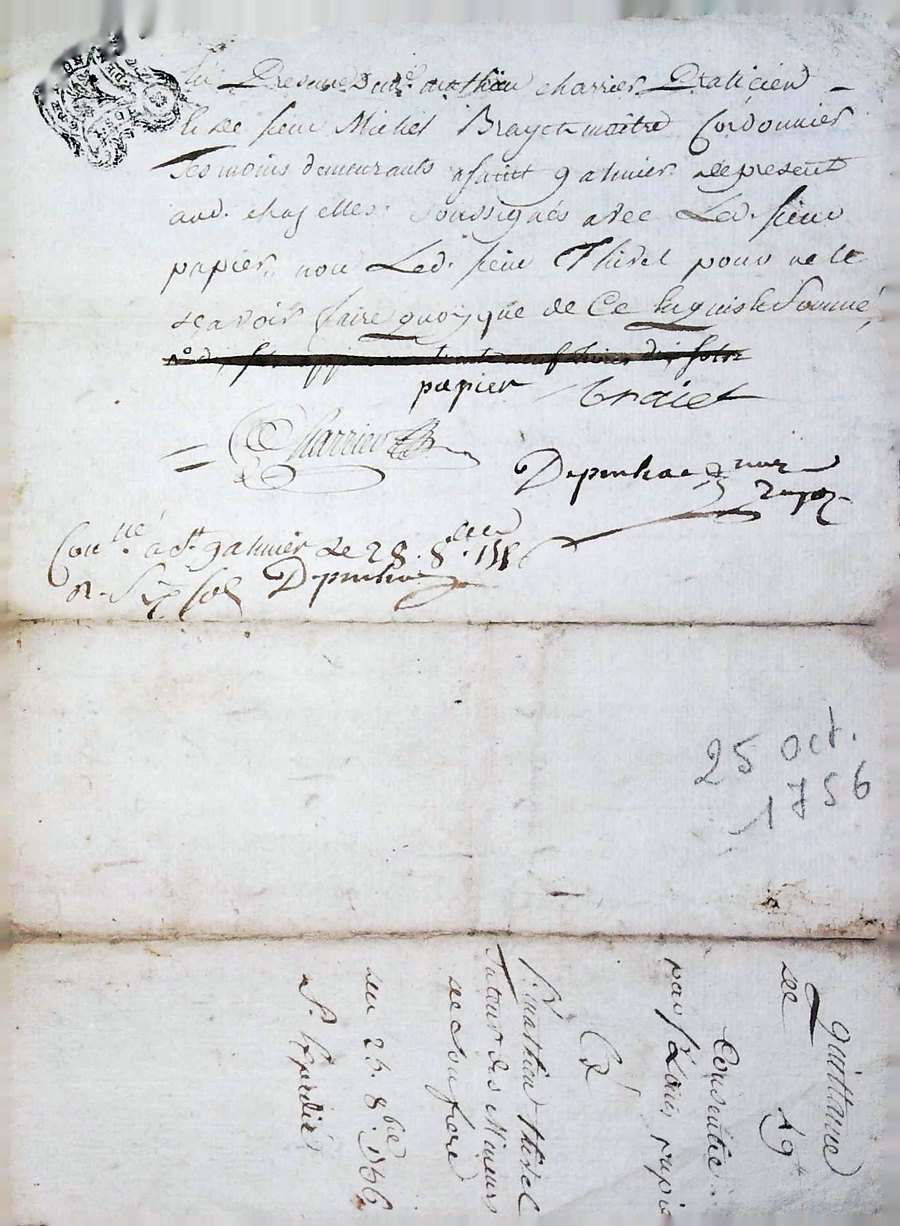 En Presence de me mathieu charrier Praticien
et de sieur Michel Brayet maitre Cordonnier
Tesmoins demeurants a saint galmier de present
aud. chazelles soussignés avec Led. sieur
papier, non Led. sieur Thivel pour ne le
scavoir faire quoyque de Ce Requis et Sommé
papier Braiet
Charrier
Depinhac
Conllé a St galmier Le 28. 8bre 1756
R. Six sols Depinhac
25 oct.
1756
quittance
de 19lt
Consentie
par sr Louis papier
a
sr mathieu thivel
tuteur des mineurs
de son frere
du 25. 8bre 1756